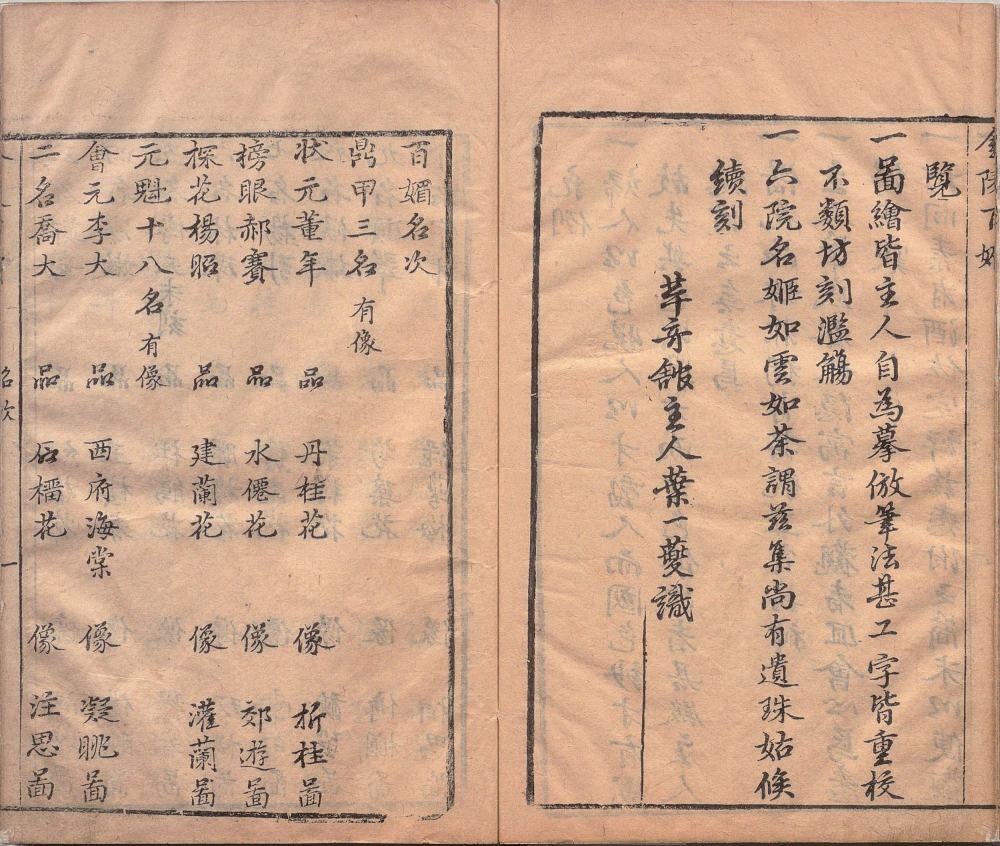 覽
一啚繪皆主人自為摹倣筆法甚工字皆重校
不類坊刻濫觴
一六院名姬如雲如荼謂茲集尚有遺珠姑俟
續刻
萃奇館主人葉一夔識
百媚名次
鼎甲三名 有像
狀元董年 品 丹桂花 像 折桂啚
榜眼郝賽 品 水僊花 像 郊遊啚
探花楊昭 品 建蘭花 像 灌蘭啚
元魁十八名 有像
會元李大 品 西府海棠 像 凝眺啚
二名喬大 品 石榴花 像 注思啚
名次 一